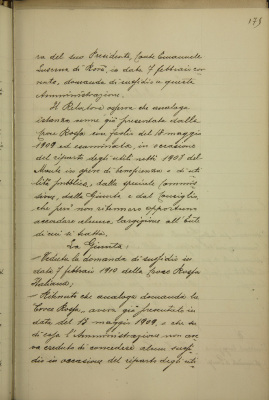 179
ra del suo Presidente, Conte Emanuele
di Roà, in data 7 febbraio cor-
rente, domanda di sussidio a questa
Amministrazione.
Il Relatore osserva che analoga
istanza venne già presentata dalla
Croce Rossa con foglio del 18 maggio
1909 ed esaminata, in occasione
del riparto degli utili netti 1908 del
Monte in opere di beneficenza e di uti-
lità pubblica, dalla speciale Commis-
sione, dalla Giunta e dal Consiglio,
che però non ritennero opportuno
accordare alcuna largizione all'Ente
di cui si tratta.
La Giunta:
- Veduta la domanda di sussidio in
data 7 febbraio 1910 della Croce Rossa
Italiana;
- Ritenuto che analoga domanda la
Croce Rossa, aveva già presentato in
data del 18 maggio 1909, e che su
di essa l'Amministrazione non ave-
va creduto di concedere alcun sussi-
dio in occasione del riparto degli uti-